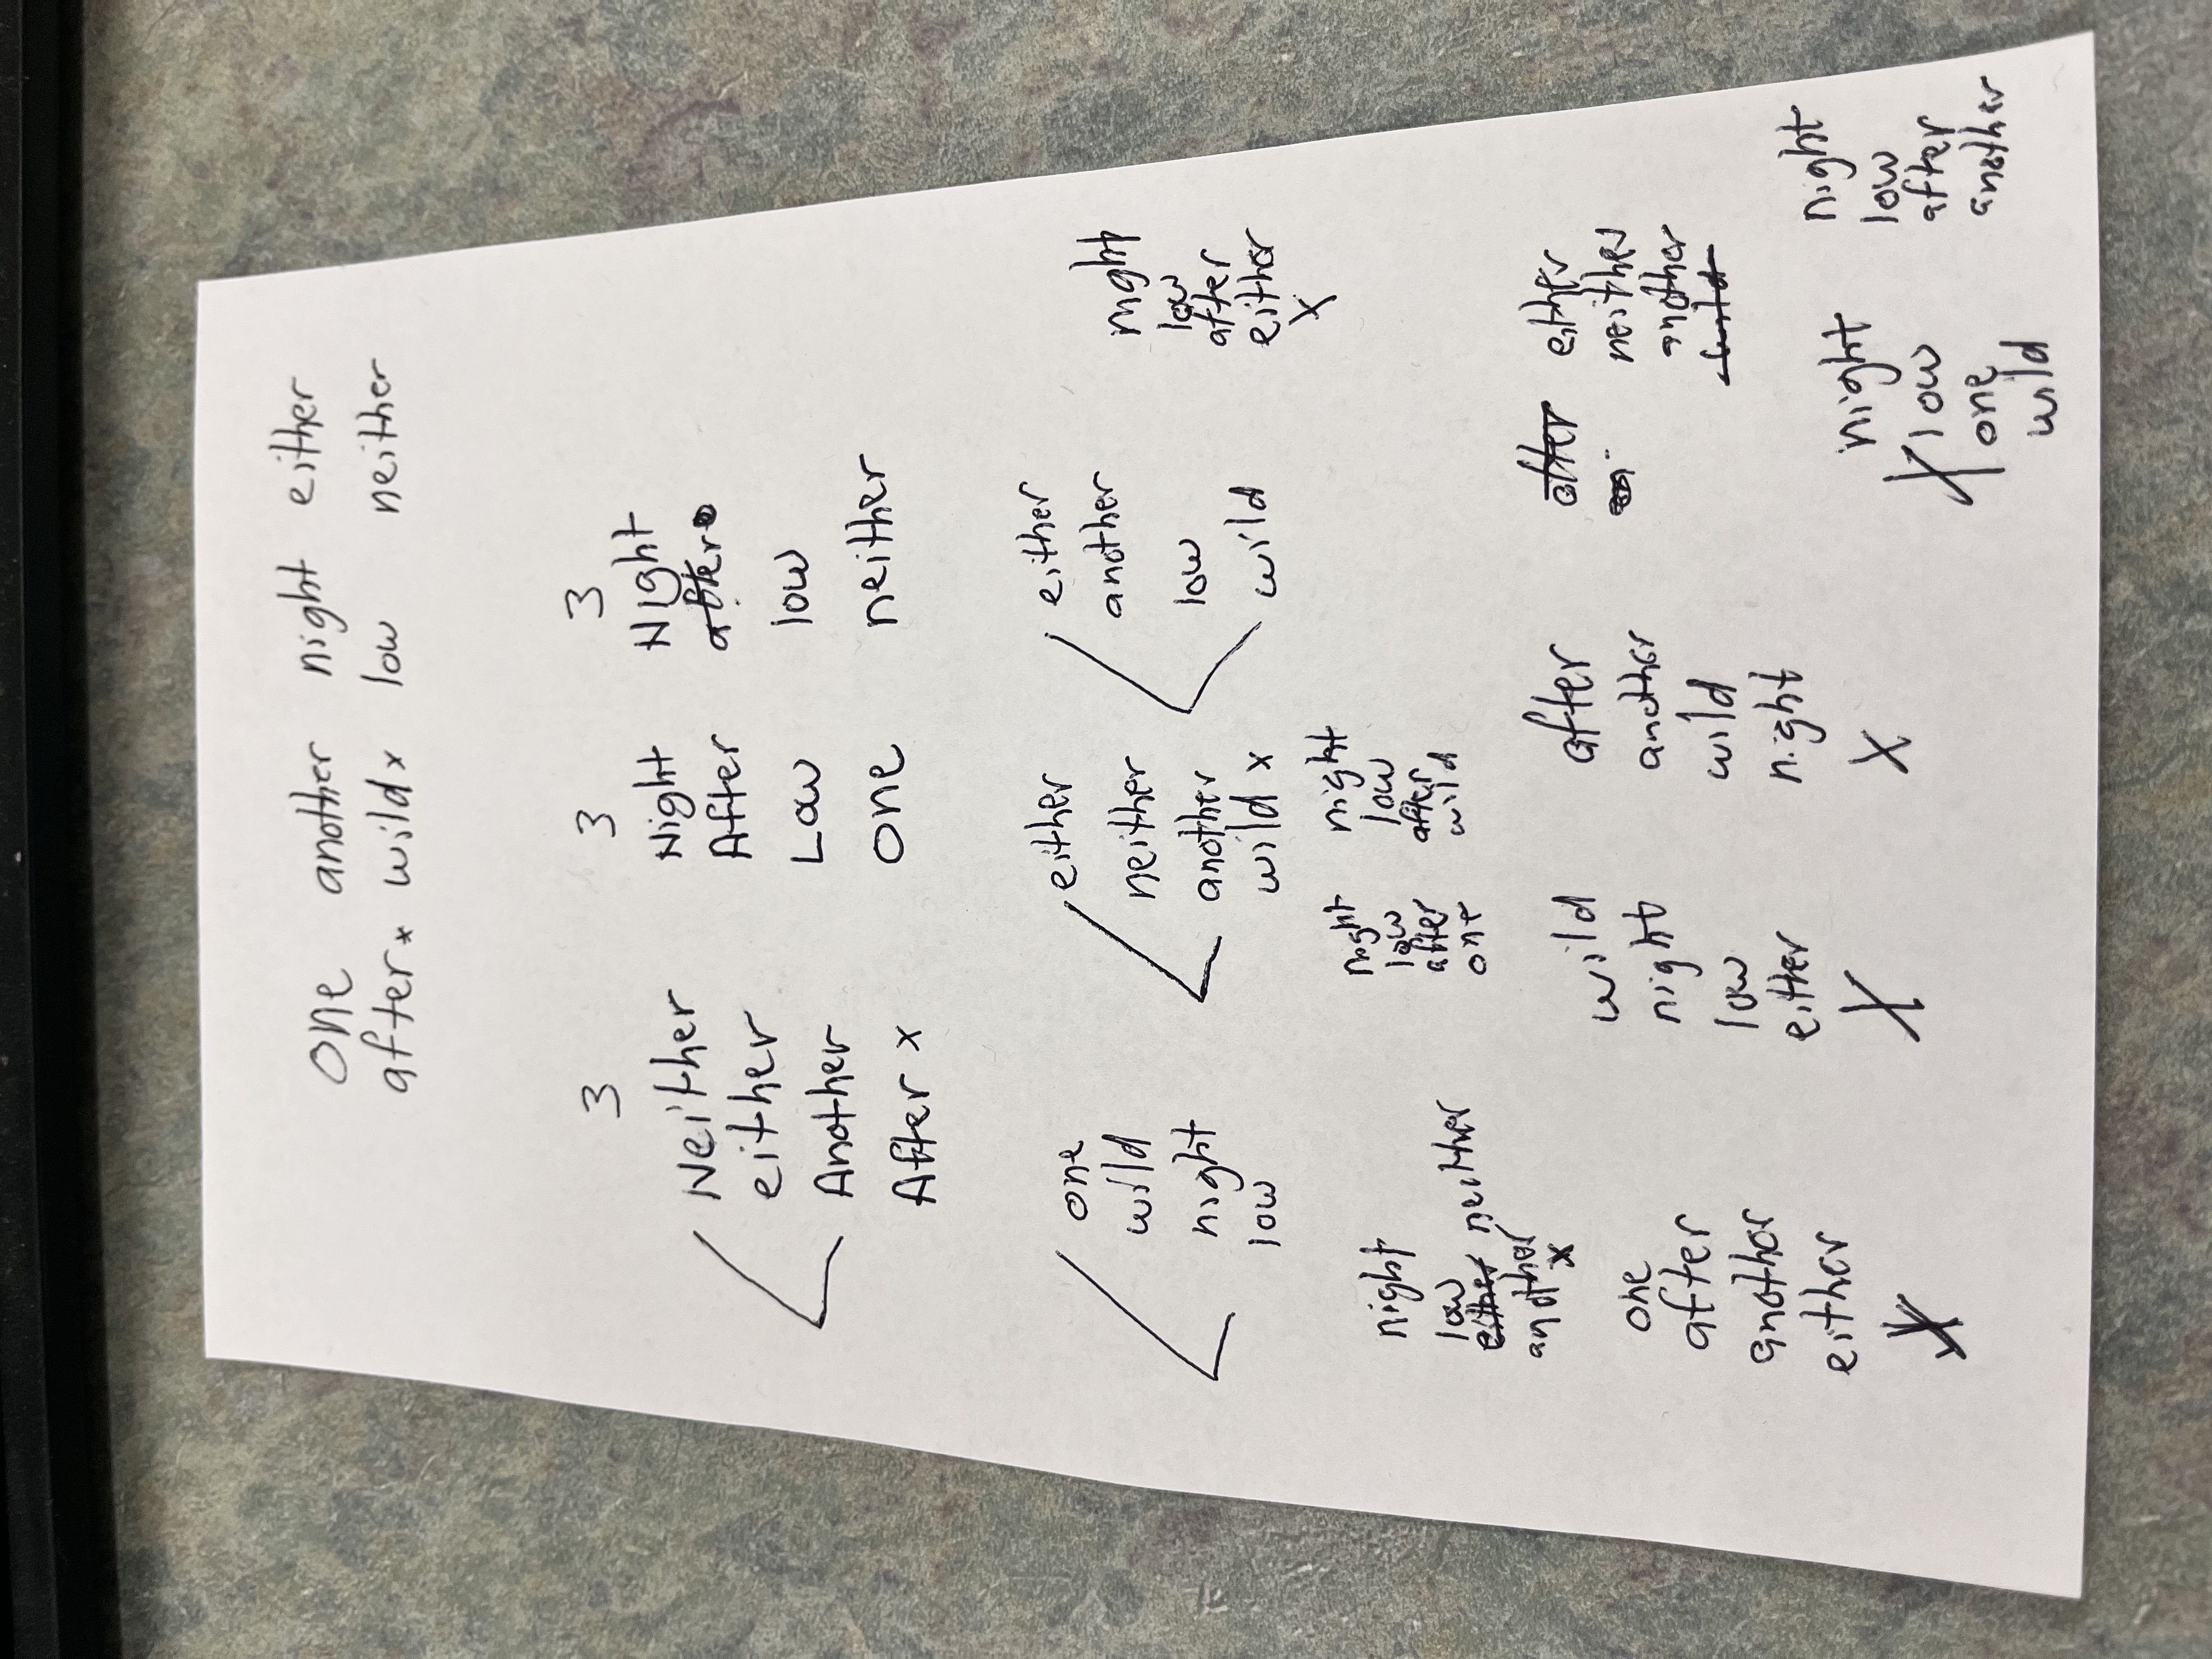 One another night either
after x wild x low neither
3
Neither
either
Another
After x
3
Night
After
Low
One
3
Night
after
low
neither
one
wild
night
low
either
neither
another
wild x
either
another
low
wild
night
low
after
either
X
night
low
either neither
another
x
night
low
after
one
night
low
after
wild
one
after
another
either
X
wild
night
low
either
X
after
another
wild
night
X
after
either
neither
another
night
X low
one
wild
night
low
after
another